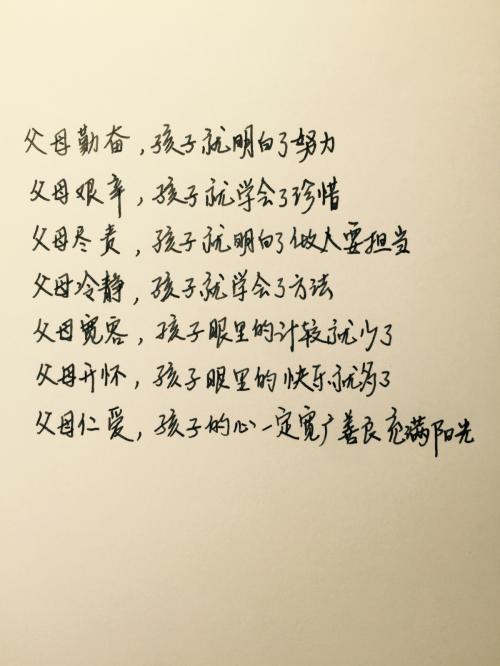 父母勤奋，孩子就明白了努力
父母艰辛，孩子就学会了珍惜
父母尽责，孩子就明白了做人要担当
父母冷静，孩子就学会了方法
父母宽容，孩子眼里的计较就少了
父母开怀，孩子眼里的快乐就多了
父母仁爱，孩子的心一定宽广善良充满阳光